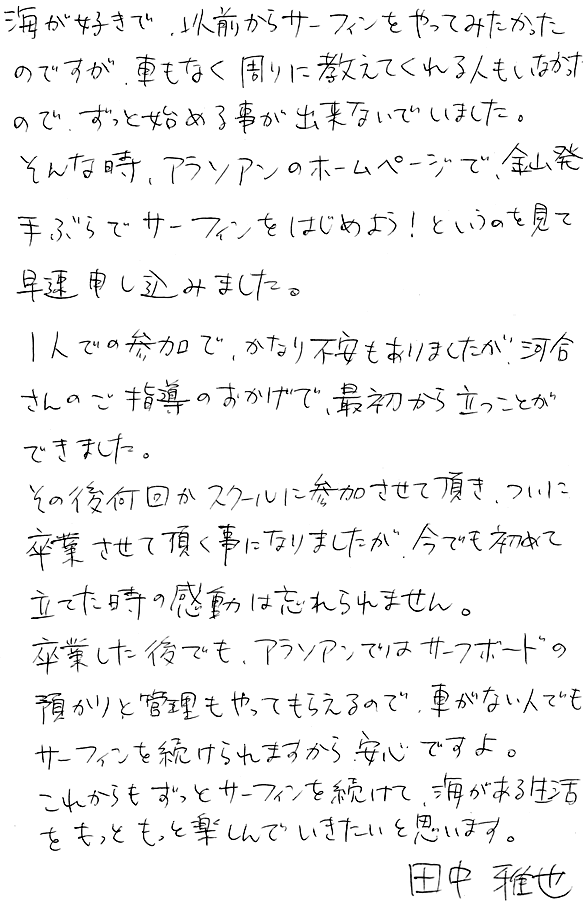 海が好きで、以前からサーフィンをやってみたかった
のですが、車もなく周りに教えてくれる人もいなかった
ので、ずっと始める事が出来ないでいました。
そんな時、アラソアンのホームページで、金山発
手ぶらでサーフィンをはじめよう！というのを見て
早速申し込みました。
1人での参加で、かなり不安もありましたが、河合
さんのご指導のおかげで、最初から立つことが
できました。
その後何回かスクールに参加させて頂き、ついに
卒業させて頂く事になりましたが、今でも初めて
立てた時の感動は忘れられません。
卒業した後でも、アラソアンではサーフボードの
預かりと管理もやってもらえるので、車がない人でも
サーフィンを続けられますから安心ですよ。
これからもずっとサーフィンを続けて、海がある生活
をもっともっと楽しんでいきたいと思います。
田中 雅也